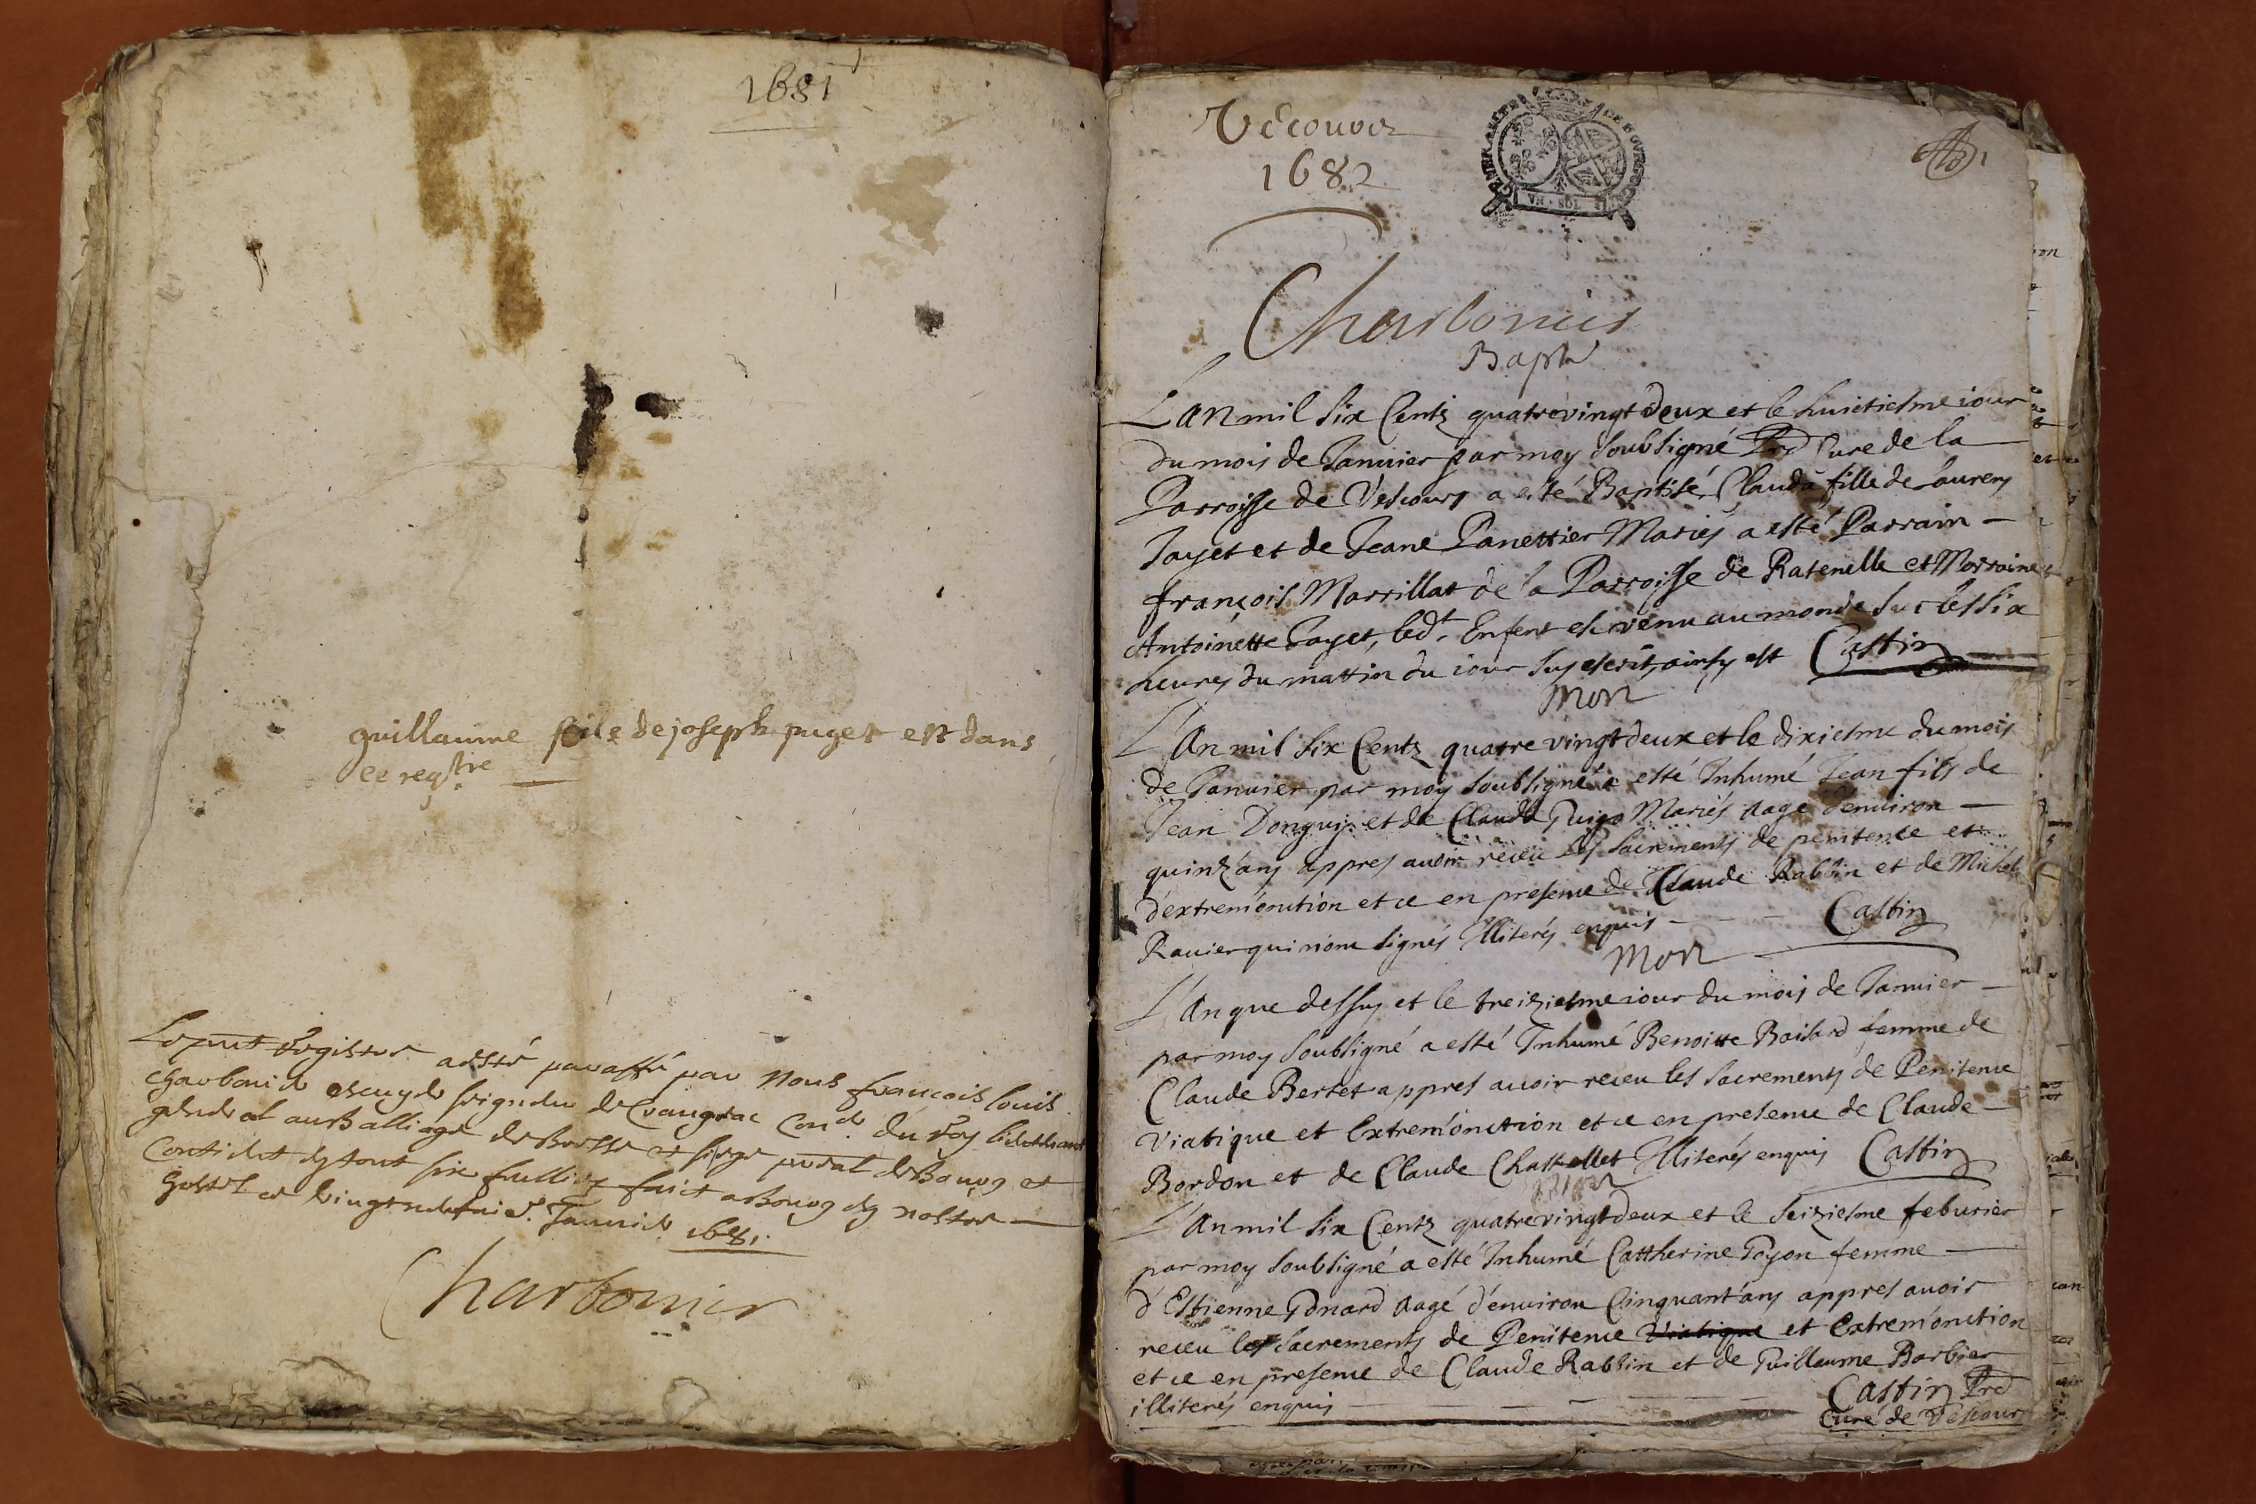 1681
guillaume filz de joseph puget est dans
ce regstre
Le pnt Registre a esté paraffé par Nous françois louis
Charbonier escuyer seigneur de Crangeac Con.er du Roy lieutenant
general au Balliage de Bresse et siege pndal de Bourg et
Contient en tout six fulliez faict a Bourg en nostre
hostel ce vingt 1681.
Charbonier
Vécours
1682
GENERALITE DE BOURGOGNE
VN SOL
Charbonier
Bapt
L'an mil six Centz quatrevingt deux et le huictiesme iour
du mois de Januier par moy soubsigné Prd Curé de la
Parroisse de Vescours a esté Baptisé Clauda fille de Laurens
Jayet et de Jeane Panettier Mariés a esté Parrain
françois Marrillat de la Parroisse de Ratenelle et Marraine
Antoinette Jayet, led.t Enfent est venu au monde sur les six
heures du mattin du iour susescrit, ainsy est Castin
Mort
L'An mil six Centz quatre vingt deux et le dixiesme du mois
de Januier par moy soubsigné a esté Inhumé Jean fils de
Jean Donguy et de Claude Guigo Mariés aagé d'enuiron
quinz'ans appres auoir receu les sacrements de penitence et
d'extremonction et ce en presence de Claude Rablin et de Michel
Rauier qui n'ont signés Illiterés enquis Castin
Mort
L'An que dessus et le treiziesme iour du mois de Januier
par moy soubsigné a esté Inhumé Benoitte Boisard femme de
Claude Bertet appres auoir receu les sacrements de Penitence
Viatique et Extremonction et ce en presence de Claude
Bordon et de Claude Chastellet Illiterés enquis Castin
Mort
L'An mil six Centz quatrevingt deux et le seiziesme feburier
par moy soubsigné a esté Inhumé Cattherine Poyon femme
d'Estienne Gonard aagé d'enuiron Cinquant'ans appres auoir
receu les sacrements de Penitence Viatique et Extremonction
et ce en presence de Claude Rablin et de Guillaume Barbier
illiterés enquis Castin Prd
Curé de Vescours